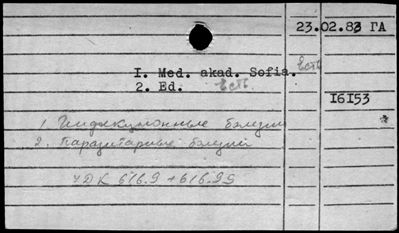 23.02.83 ГА
I. Med. akad. Sofia. есть
2. Ed. есть
I6I53
1. Инфекционные болезни
2. Паразитарные болезни
УДК 616.9 + 616.99